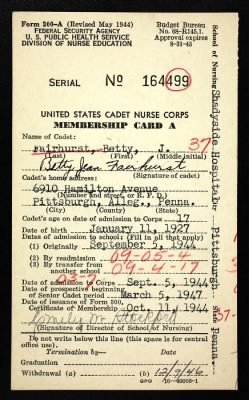 Form 300-A (Revised May 1944)
FEDERAL SECURITY AGENCY
U. S. PUBLIC HEALTH SERVICE
DIVISION OF NURSE EDUCATION
Budget Bureau
No. 68-R1145.1.
Approval expires
8-31-45
SERIAL No 164499
UNITED STATES CADET NURSE CORPS
MEMBERSHIP CARD A
Name of Cadet:
37
Fairhurst, Betty, J.
(Last) (First) (Middle initial)
Betty Jean Fairhurst
Cadet's home address: (Signature of cadet)
6910 Hamilton Avenue
(Number and street or R. F. D.)
Pittsburgh, Alleg., Penna.
(City) (County) (State)
Cadet's age on date of admission to Corps - 17
Date of birth January 11, 1927
Dates of admission to school: (Fill in all that apply)
(1) Originally September 5, 1944
(2) By readmission 09-05-4
(3) By transfer from another school 09-4-17
03-3
Date of admission to Corps Sept. 5, 1944
Date of prospective beginning of Senior Cadet period March 5, 1947
Date of issuance of Form 300, Certificate of Membership Oct. 11, 1944
Emily M.
(Signature of Director of School of Nursing)
Do not write below this line (this space is for central office use).
Termination by— Date
Graduation
Withdrawal (a) (b) 12/9/46
GPO 16-40016-1
School of Nursing Shadyside Hospital - Pittsburgh Penna.
37-